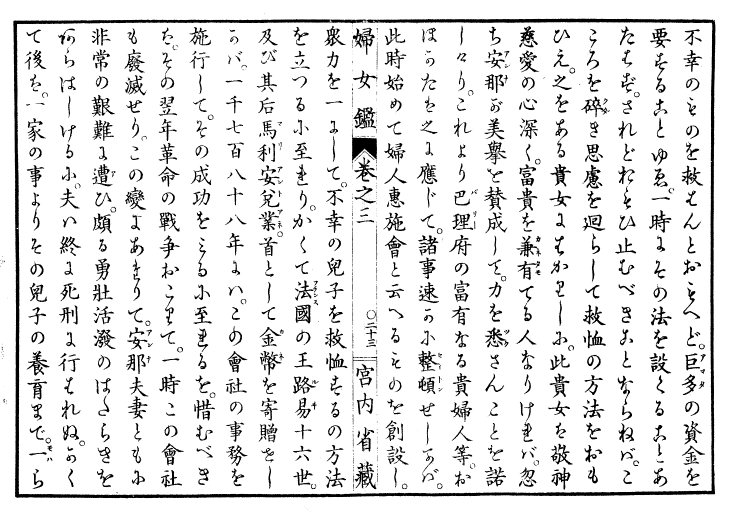 不幸のものを救はんとおもへど。巨多の資金を
要することゆゑ。一時にその法を設くることあ
たはず。されどおもひ止むべきことならねば。こ
ころを碎き思慮を廻らして救恤の方法をおも
ひえ。之をある貴女にはかりしに。此貴女も敬神
慈愛の心深く。富貴を兼有てる人なりければ。忽
ち安那が美擧を賛成して。力を悉さんことを諾
しけり。これより巴理府の富有なる貴婦人等。お
ほかたも之に應じて。諸事速かに整頓せしかば。
此時始めて婦人惠施會と云へるものを創設し。
婦女鑑 卷之三 ○二十三 宮内省藏
衆力を一にして。不幸の兒子を救恤するの方法
を立つるに至れり。かくて法國の王路易十六世。
及び其后馬利安兌業首として金幣を寄贈せし
かば。一千七百八十八年には。この會社の事務を
施行して。その成功をみるに至れるを。惜むべき
は。その翌年革命の戰爭おこりて。一時この會社
も廢滅せり。この變にあたりて。安那夫妻ともに
非常の艱難に遭ひ。頗る勇壯活潑のはたらきを
あらはしけるに。夫は終に死刑に行はれぬ。かく
て後は。一家の事よりその兒子の養育まで。一ら